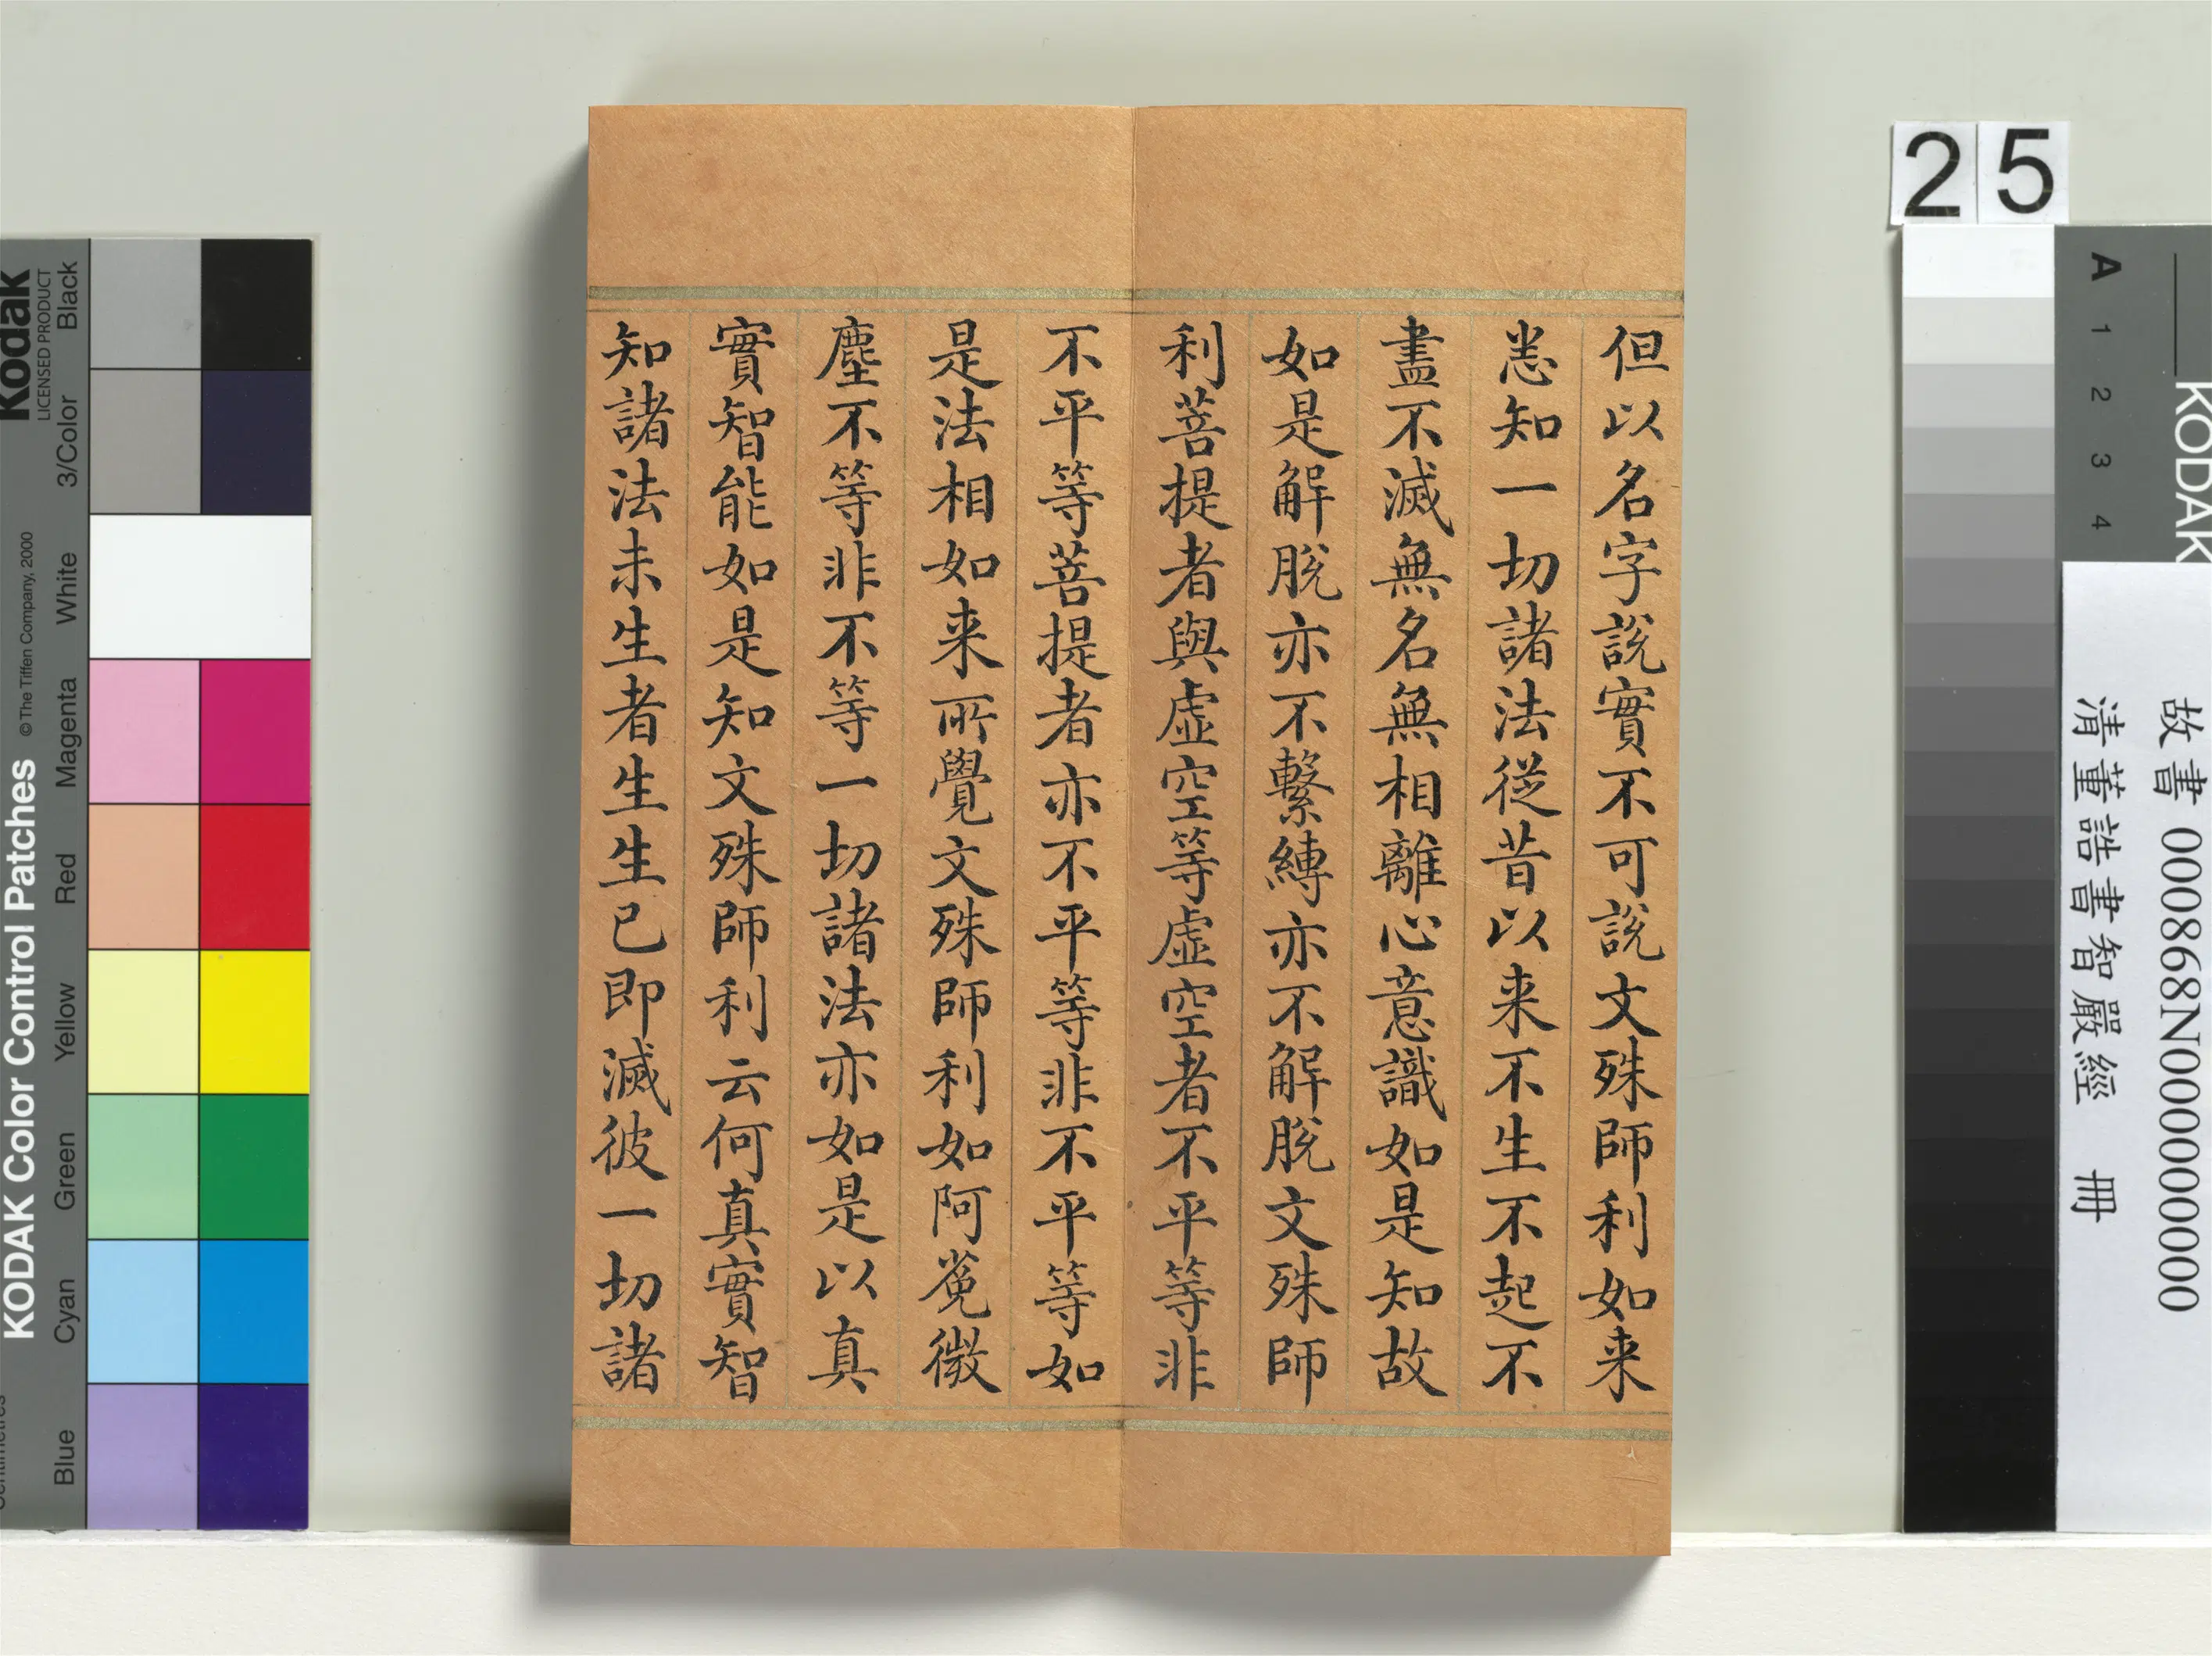 但以名字說實不可說文殊師利如来
悉知一切諸法從昔以来不生不起不
盡不滅無名無相離心意識如是知故
如是解脫亦不繫縛亦不解脫文殊師
利菩提者與虛空等虛空者不平等非
不平等菩提者亦不平等非不平等如
是法相如来所覺文殊師利如阿㝹微
塵不等非不等一切諸法亦如是以真
實智能如是知文殊師利云何真實智
知諸法未生者生生已即滅彼一切諸
25
KODAK
A 1 2 3 4
故書 000868N000000000
清董誥書智嚴經 冊
Kodak
LICENSED PRODUCT
KODAK Color Control Patches
© The Tiffen Company, 2000
Blue Cyan Green Yellow Red Magenta White 3/Color Black